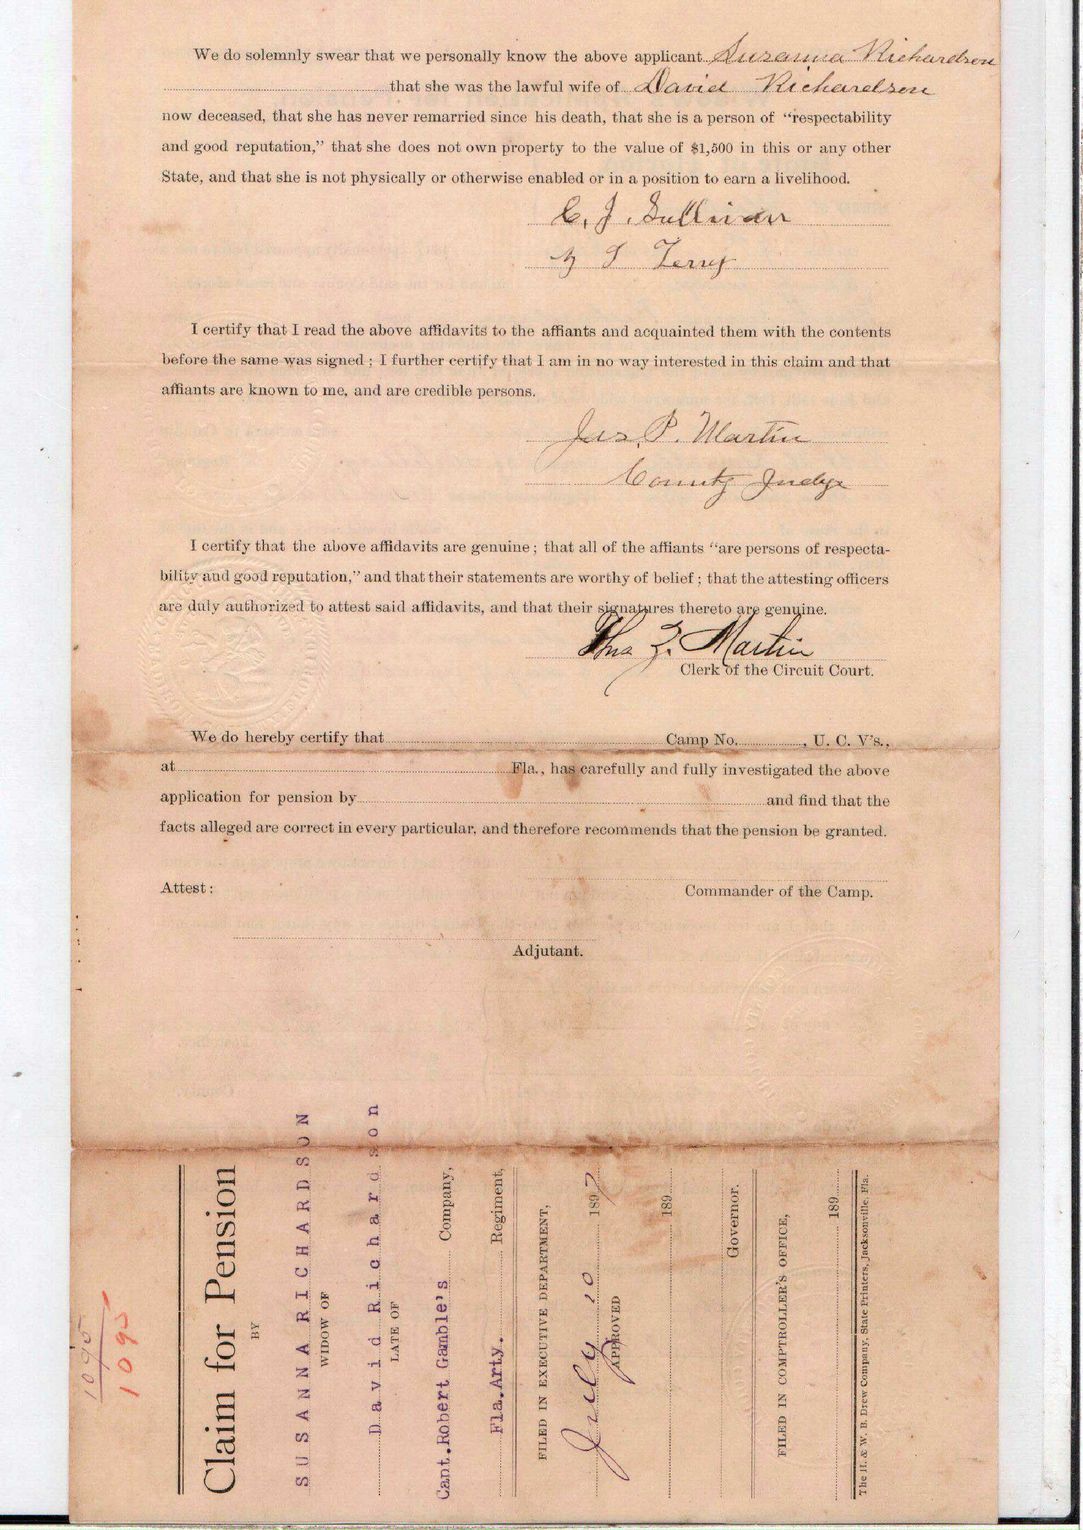 We do solemnly swear that we personally know the above applicant Suzanna Richardson
that she was the lawful wife of David Richardson
now deceased, that she has never remarried since his death, that she is a person of “respectability
and good reputation,” that she does not own property to the value of $1,500 in this or any other
State, and that she is not physically or otherwise enabled or in a position to earn a livelihood.
C. J. Sullivan
Terry
I certify that I read the above affidavits to the affiants and acquainted them with the contents
before the same was signed ; I further certify that I am in no way interested in this claim and that
affiants are known to me, and are credible persons.
Jas. P. Martin
County Judge
I certify that the above affidavits are genuine ; that all of the affiants “are persons of respecta-
bility and good reputation,” and that their statements are worthy of belief ; that the attesting officers
are duly authorized to attest said affidavits, and that their signatures thereto are genuine.
Martin
Clerk of the Circuit Court.
We do hereby certify that Camp No. , U. C. V's.,
at Fla., has carefully and fully investigated the above
application for pension by and find that the
facts alleged are correct in every particular, and therefore recommends that the pension be granted.
Attest : Commander of the Camp.
Adjutant.
1095
1095
Claim for Pension
BY
SUSANNA RICHARDSON
WIDOW OF
David Richardson
LATE OF
Cant.Robert Gamble's Company,
Fla.Arty. Regiment,
FILED IN EXECUTIVE DEPARTMENT,
July 10 1897
APPROVED
189
Governor.
FILED IN COMPTROLLER'S OFFICE,
189
The H. & W. B. Drew Company, State Printers, Jacksonville, Fla.